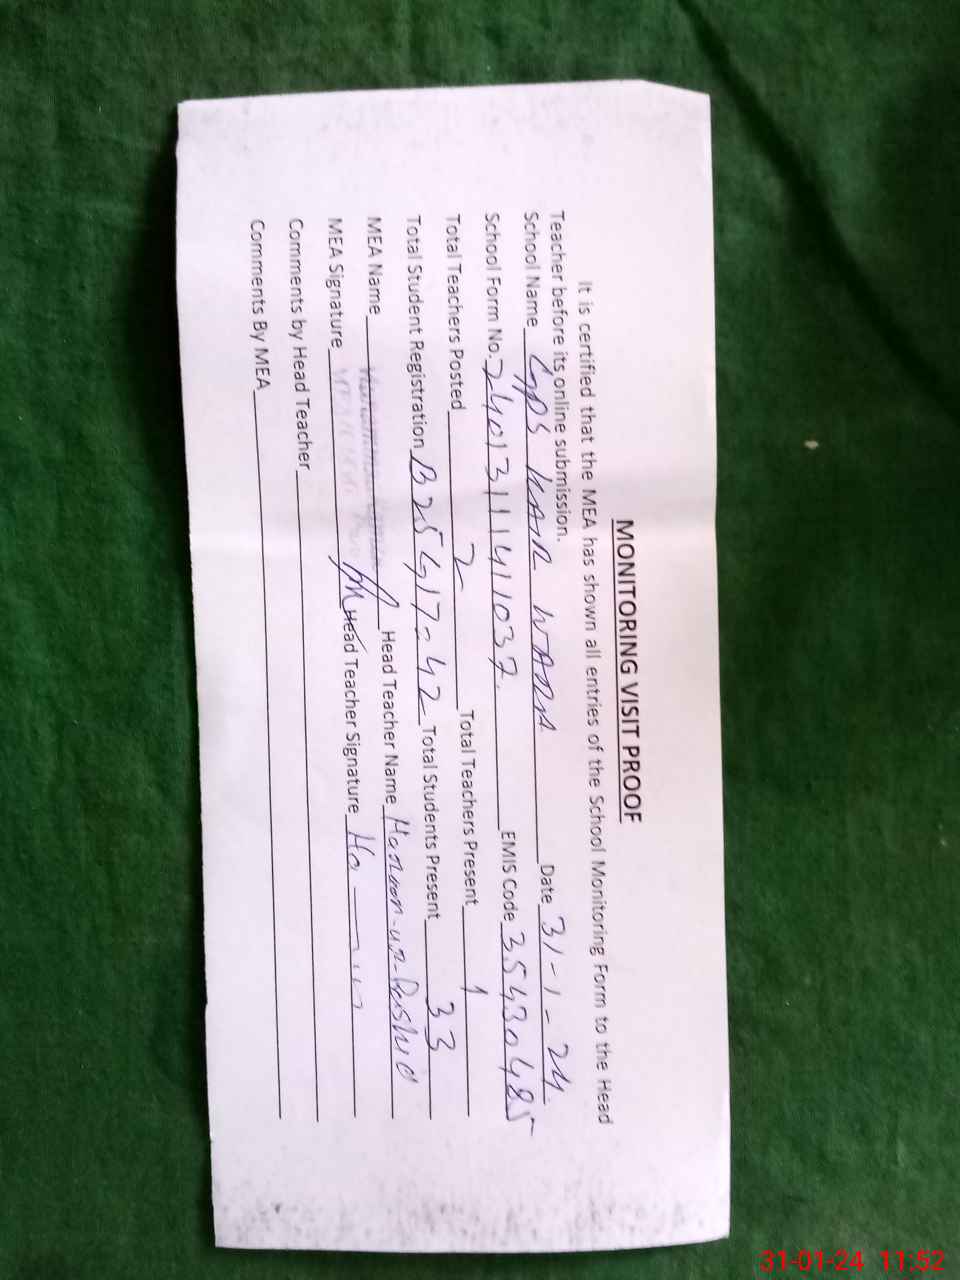 MONITORING VISIT PROOF
It is certified that the MEA has shown all entries of the School Monitoring Form to the Head
Teacher before its online submission.
School Name GPS KAIR WARA Date 31-1-24
School Form No. 24013111411037 EMIS Code 35430485
Total Teachers Posted 2 Total Teachers Present 1
Total Student Registration B 25 G 17 = 42 Total Students Present 33
MEA Name Head Teacher Name Haroon-ur-Rashid
MEA Signature Head Teacher Signature
Comments by Head Teacher
Comments By MEA
31-01-24 11:52